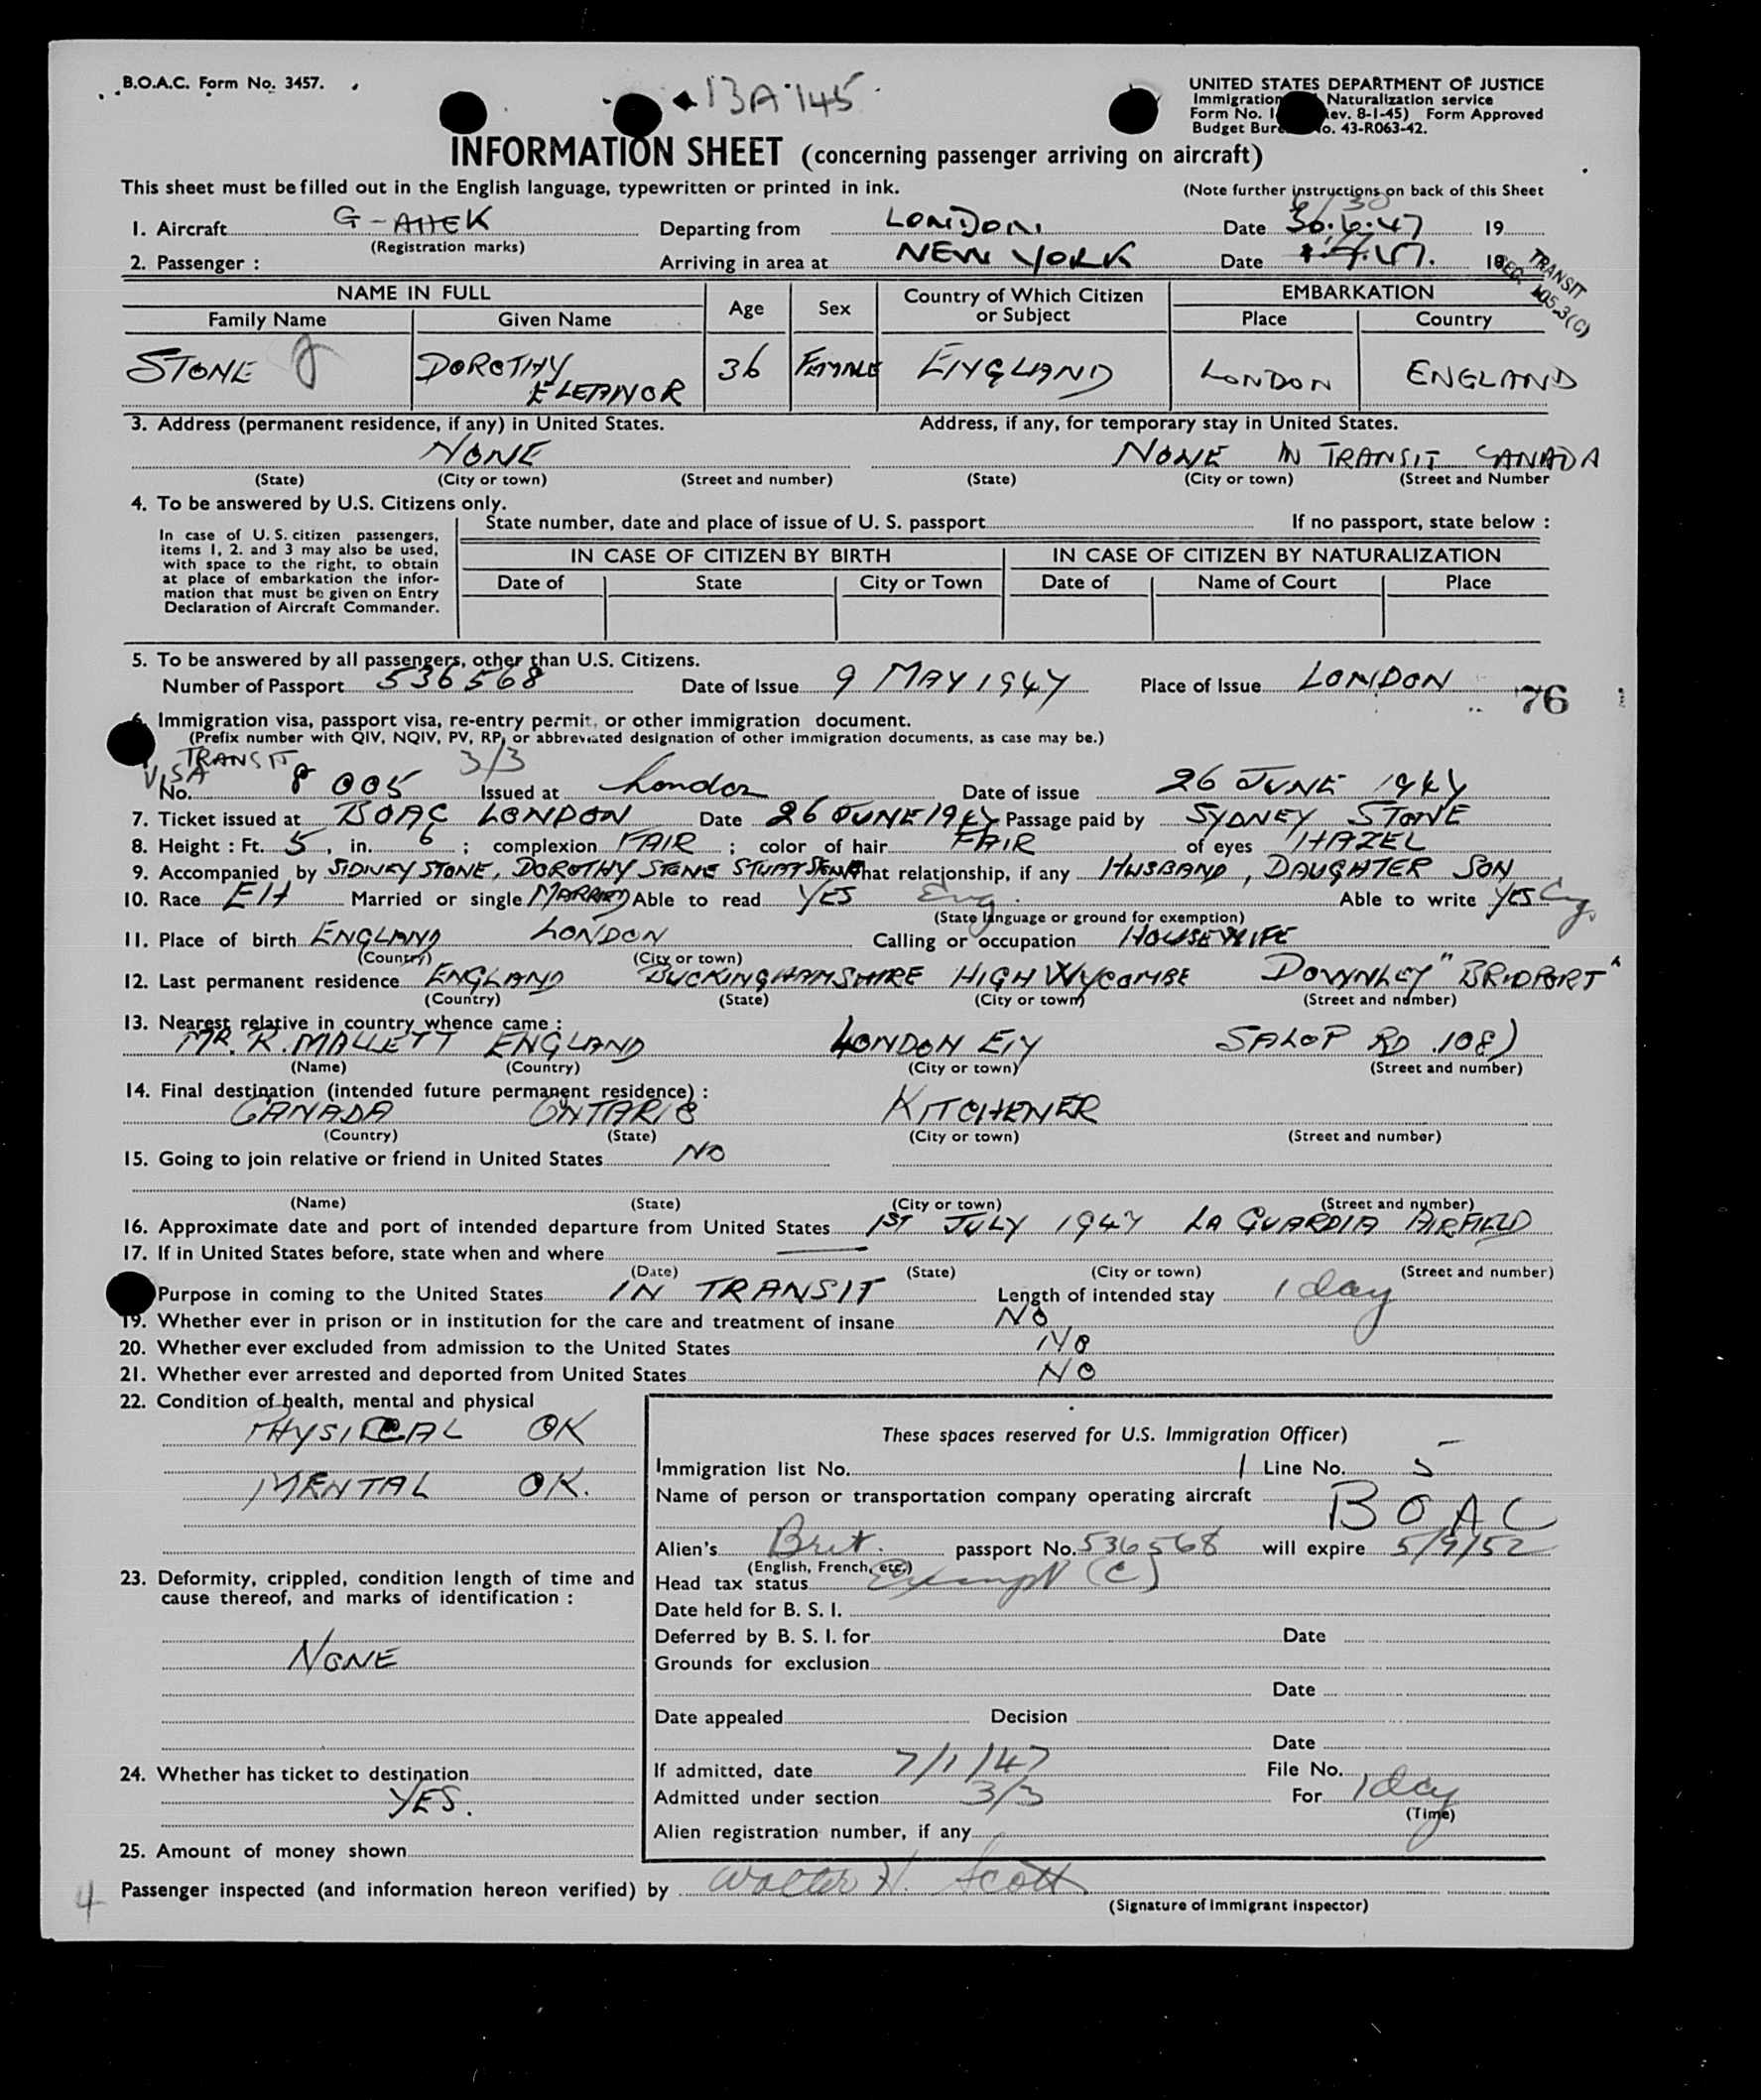 B.O.A.C. Form No. 3457.
13A·145
UNITED STATES DEPARTMENT OF JUSTICE
Immigration Naturalization service
Form No. I ev. 8-1-45) Form Approved
Budget Bure o. 43-R063-42.
INFORMATION SHEET (concerning passenger arriving on aircraft)
This sheet must be filled out in the English language, typewritten or printed in ink. (Note further instructions on back of this Sheet
1. Aircraft G-AHEK Departing from LONDON Date 30.6.47 19
(Registration marks)
2. Passenger : Arriving in area at NEW YORK Date 1.7.47.
TRANSIT
SEC. 105.3(C)
NAME IN FULL Age Sex Country of Which Citizen or Subject EMBARKATION
Family Name Given Name Place Country
STONE DOROTHY ELEANOR 36 FEMALE ENGLAND LONDON ENGLAND
3. Address (permanent residence, if any) in United States. Address, if any, for temporary stay in United States.
NONE NONE IN TRANSIT CANADA
(State) (City or town) (Street and number) (State) (City or town) (Street and Number
4. To be answered by U.S. Citizens only.
In case of U.S. citizen passengers, items 1, 2. and 3 may also be used, with space to the right, to obtain at place of embarkation the information that must be given on Entry Declaration of Aircraft Commander.
State number, date and place of issue of U. S. passport If no passport, state below :
IN CASE OF CITIZEN BY BIRTH IN CASE OF CITIZEN BY NATURALIZATION
Date of State City or Town Date of Name of Court Place
5. To be answered by all passengers, other than U.S. Citizens.
Number of Passport 536568 Date of Issue 9 MAY 1947 Place of Issue LONDON
76
6. Immigration visa, passport visa, re-entry permit, or other immigration document.
(Prefix number with QIV, NQIV, PV, RP, or abbreviated designation of other immigration documents, as case may be.)
TRANSIT VISA 3/3
No. 8005 Issued at London Date of issue 26 JUNE 1947
7. Ticket issued at BOAC LONDON Date 26 JUNE 1947 Passage paid by SYDNEY STONE
8. Height : Ft. 5, in. 6 ; complexion FAIR ; color of hair FAIR of eyes HAZEL
9. Accompanied by SIDNEY STONE, DOROTHY STONE STUART STONE What relationship, if any HUSBAND, DAUGHTER SON
10. Race EH Married or single MARRIED Able to read YES Eng. Able to write YES Eng.
(State language or ground for exemption)
11. Place of birth ENGLAND LONDON Calling or occupation HOUSEWIFE
(Country) (City or town)
12. Last permanent residence ENGLAND BUCKINGHAMSHIRE HIGH WYCOMBE DOWNLEY "BRIDPORT"
(Country) (State) (City or town) (Street and number)
13. Nearest relative in country whence came :
MR. R. MALLETT ENGLAND LONDON E17 SALOP RD .108)
(Name) (Country) (City or town) (Street and number)
14. Final destination (intended future permanent residence) :
CANADA ONTARIO KITCHENER
(Country) (State) (City or town) (Street and number)
15. Going to join relative or friend in United States NO
(Name) (State) (City or town) (Street and number)
16. Approximate date and port of intended departure from United States 1ST JULY 1947 LA GUARDIA AIRFIELD
17. If in United States before, state when and where
(Date) (State) (City or town) (Street and number)
Purpose in coming to the United States IN TRANSIT Length of intended stay 1 day
19. Whether ever in prison or in institution for the care and treatment of insane NO
20. Whether ever excluded from admission to the United States NO
21. Whether ever arrested and deported from United States NO
22. Condition of health, mental and physical
PHYSICAL OK
MENTAL OK.
23. Deformity, crippled, condition length of time and
cause thereof, and marks of identification :
NONE
24. Whether has ticket to destination
YES.
25. Amount of money shown
These spaces reserved for U.S. Immigration Officer)
Immigration list No. 1 Line No. 5
Name of person or transportation company operating aircraft BOAC
Alien's Brit. passport No. 536568 will expire 5/9/52
(English, French, etc.)
Head tax status Exempt (C)
Date held for B. S. I.
Deferred by B. S. I. for Date
Grounds for exclusion
Date
Date appealed Decision
Date
If admitted, date 7/1/47 File No.
Admitted under section 3/3 For 1 day
(Time)
Alien registration number, if any
4 Passenger inspected (and information hereon verified) by Walter H. Scott
(Signature of Immigrant Inspector)